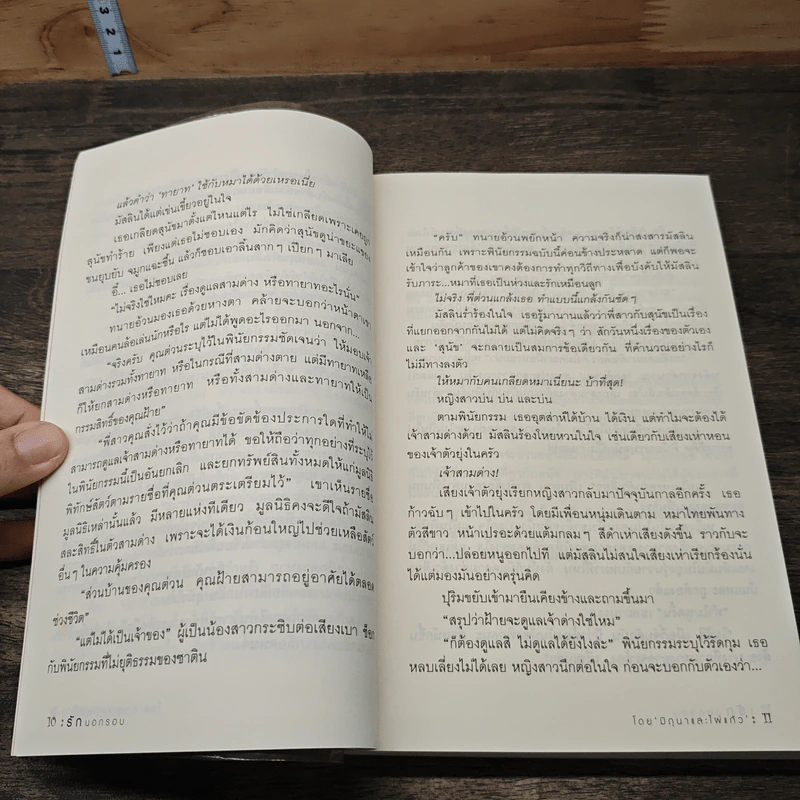 3
2
1
แล้วคำว่า ‘ทายาท’ ใช้กับหมาได้ด้วยเหรอเนี่ย
มัสลินได้แต่เข่นเขี้ยวอยู่ในใจ
เธอเกลียดสุนัขมาตั้งแต่ไหนแต่ไร ไม่ใช่เกลียดเพราะเคยถูก
สุนัขทำร้าย เพียงแต่เธอไม่ชอบเอง มักคิดว่าสุนัขดูน่าขยะแขยง
ขนยุบยับ จมูกแฉะชื้น แล้วก็ชอบเอาลิ้นสากๆ เปียกๆ มาเลีย
อี๋... เธอไม่ชอบเลย
“ไม่จริงใช่ไหมคะ เรื่องดูแลสามด่าง หรือทายาทอะไรนั่น”
ทนายอ้วนมองเธอด้วยหางตา คล้ายจะบอกว่าหน้าตาเขา
เหมือนคนล้อเล่นนักหรือไร แต่ไม่ได้พูดอะไรออกมา นอกจาก...
“จริงครับ คุณต่วนระบุไว้ในพินัยกรรมชัดเจนว่า ให้มอบเจ้า
สามด่างรวมทั้งทายาท หรือในกรณีที่สามด่างตาย แต่มีทายาทเหลือ
ก็ให้ยกสามด่างหรือทายาท หรือทั้งสามด่างและทายาทให้เป็น
กรรมสิทธิ์ของคุณฝ้าย”
“พี่สาวคุณสั่งไว้ว่าถ้าคุณมีข้อขัดข้องประการใดที่ทำให้ไม่
สามารถดูแลเจ้าสามด่างหรือทายาทได้ ขอให้ถือว่าทุกอย่างที่ระบุไว้
ในพินัยกรรมนี้เป็นอันยกเลิก และยกทรัพย์สินทั้งหมดให้แก่มูลนิธิ
พิทักษ์สัตว์ตามรายชื่อที่คุณต่วนตระเตรียมไว้” เขาเห็นรายชื่อ
มูลนิธิเหล่านั้นแล้ว มีหลายแห่งทีเดียว มูลนิธิคงจะดีใจถ้ามัสลิน
สละสิทธิ์ในตัวสามด่าง เพราะจะได้เงินก้อนใหญ่ไปช่วยเหลือสัตว์
อื่นๆ ในความคุ้มครอง
“ส่วนบ้านของคุณต่วน คุณฝ้ายสามารถอยู่อาศัยได้ตลอด
ช่วงชีวิต”
“แต่ไม่ได้เป็นเจ้าของ” ผู้เป็นน้องสาวกระซิบต่อเสียงเบา ช็อก
กับพินัยกรรมที่ไม่ยุติธรรมของซาติน
10 : รักนอกรอบ
“ครับ” ทนายอ้วนพยักหน้า ความจริงก็น่าสงสารมัสลิน
เหมือนกัน เพราะพินัยกรรมฉบับนี้ค่อนข้างประหลาด แต่ก็พอจะ
เข้าใจว่าลูกค้าของเขาคงต้องการทำทุกวิถีทางเพื่อบังคับให้มัสลิน
รับภาระ...หมาที่เธอเป็นห่วงและรักเหมือนลูก
ไม่จริง พี่ต่วนแกล้งเธอ ทำแบบนี้แกล้งกันชัดๆ
มัสลินร่ำร้องในใจ เธอรู้มานานแล้วว่าพี่สาวกับสุนัขเป็นเรื่อง
ที่แยกออกจากกันไม่ได้ แต่ไม่คิดจริงๆ ว่า สักวันหนึ่งเรื่องของตัวเอง
และ ‘สุนัข’ จะกลายเป็นสมการข้อเดียวกัน ที่คำนวณอย่างไรก็
ไม่มีทางลงตัว
ให้หมากับคนเกลียดหมาเนี่ยนะ บ้าที่สุด!
หญิงสาวบ่น บ่น และบ่น
ตามพินัยกรรม เธออุตส่าห์ได้บ้าน ได้เงิน แต่ทำไมจะต้องได้
เจ้าสามด่างด้วย มัสลินร้องโหยหวนในใจ เช่นเดียวกับเสียงเห่าหอน
ของเจ้าตัวยุ่งในครัว
เจ้าสามด่าง!
เสียงเจ้าตัวยุ่งเรียกหญิงสาวกลับมาปัจจุบันกาลอีกครั้ง เธอ
ก้าวฉับๆ เข้าไปในครัว โดยมีเพื่อนหนุ่มเดินตาม หมาไทยพันทาง
ตัวสีขาว หน้าเปรอะด้วยแต้มกลมๆ สีดำเห่าเสียงดังขึ้น ราวกับจะ
บอกว่า...ปล่อยหนูออกไปที แต่มัสลินไม่สนใจเสียงเห่าเรียกร้องนั่น
ได้แต่มองมันอย่างครุ่นคิด
ปุริมขยับเข้ามายืนเคียงข้างและถามขึ้นมา
“สรุปว่าฝ้ายจะดูแลเจ้าด่างใช่ไหม”
“ก็ต้องดูแลสิ ไม่ดูแลได้ยังไงล่ะ” พินัยกรรมระบุไว้รัดกุม เธอ
หลบเลี่ยงไม่ได้เลย หญิงสาวนึกต่อในใจ ก่อนจะบอกกับตัวเองว่า...
โดย ‘มิถุนาและไฟแก้ว’ : 11